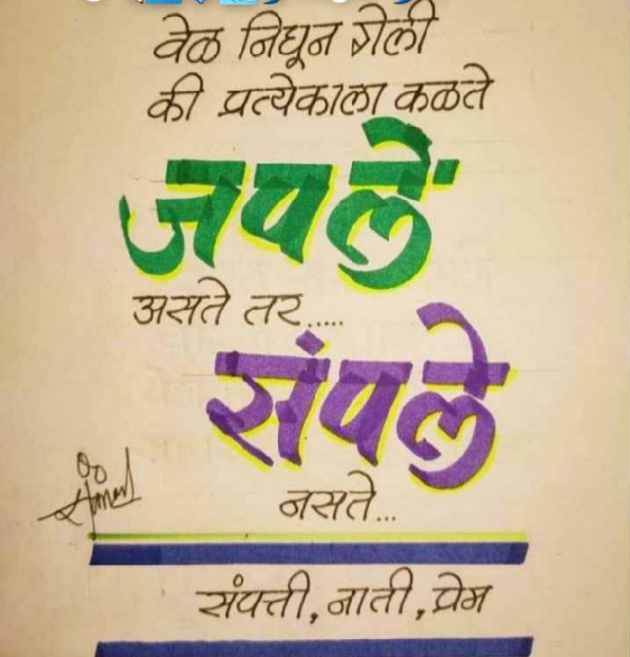 वेळ निघून गेली
की प्रत्येकाला कळते
जपलें
असते तर.....
संपले
नसते...
संपत्ती, नाती, प्रेम